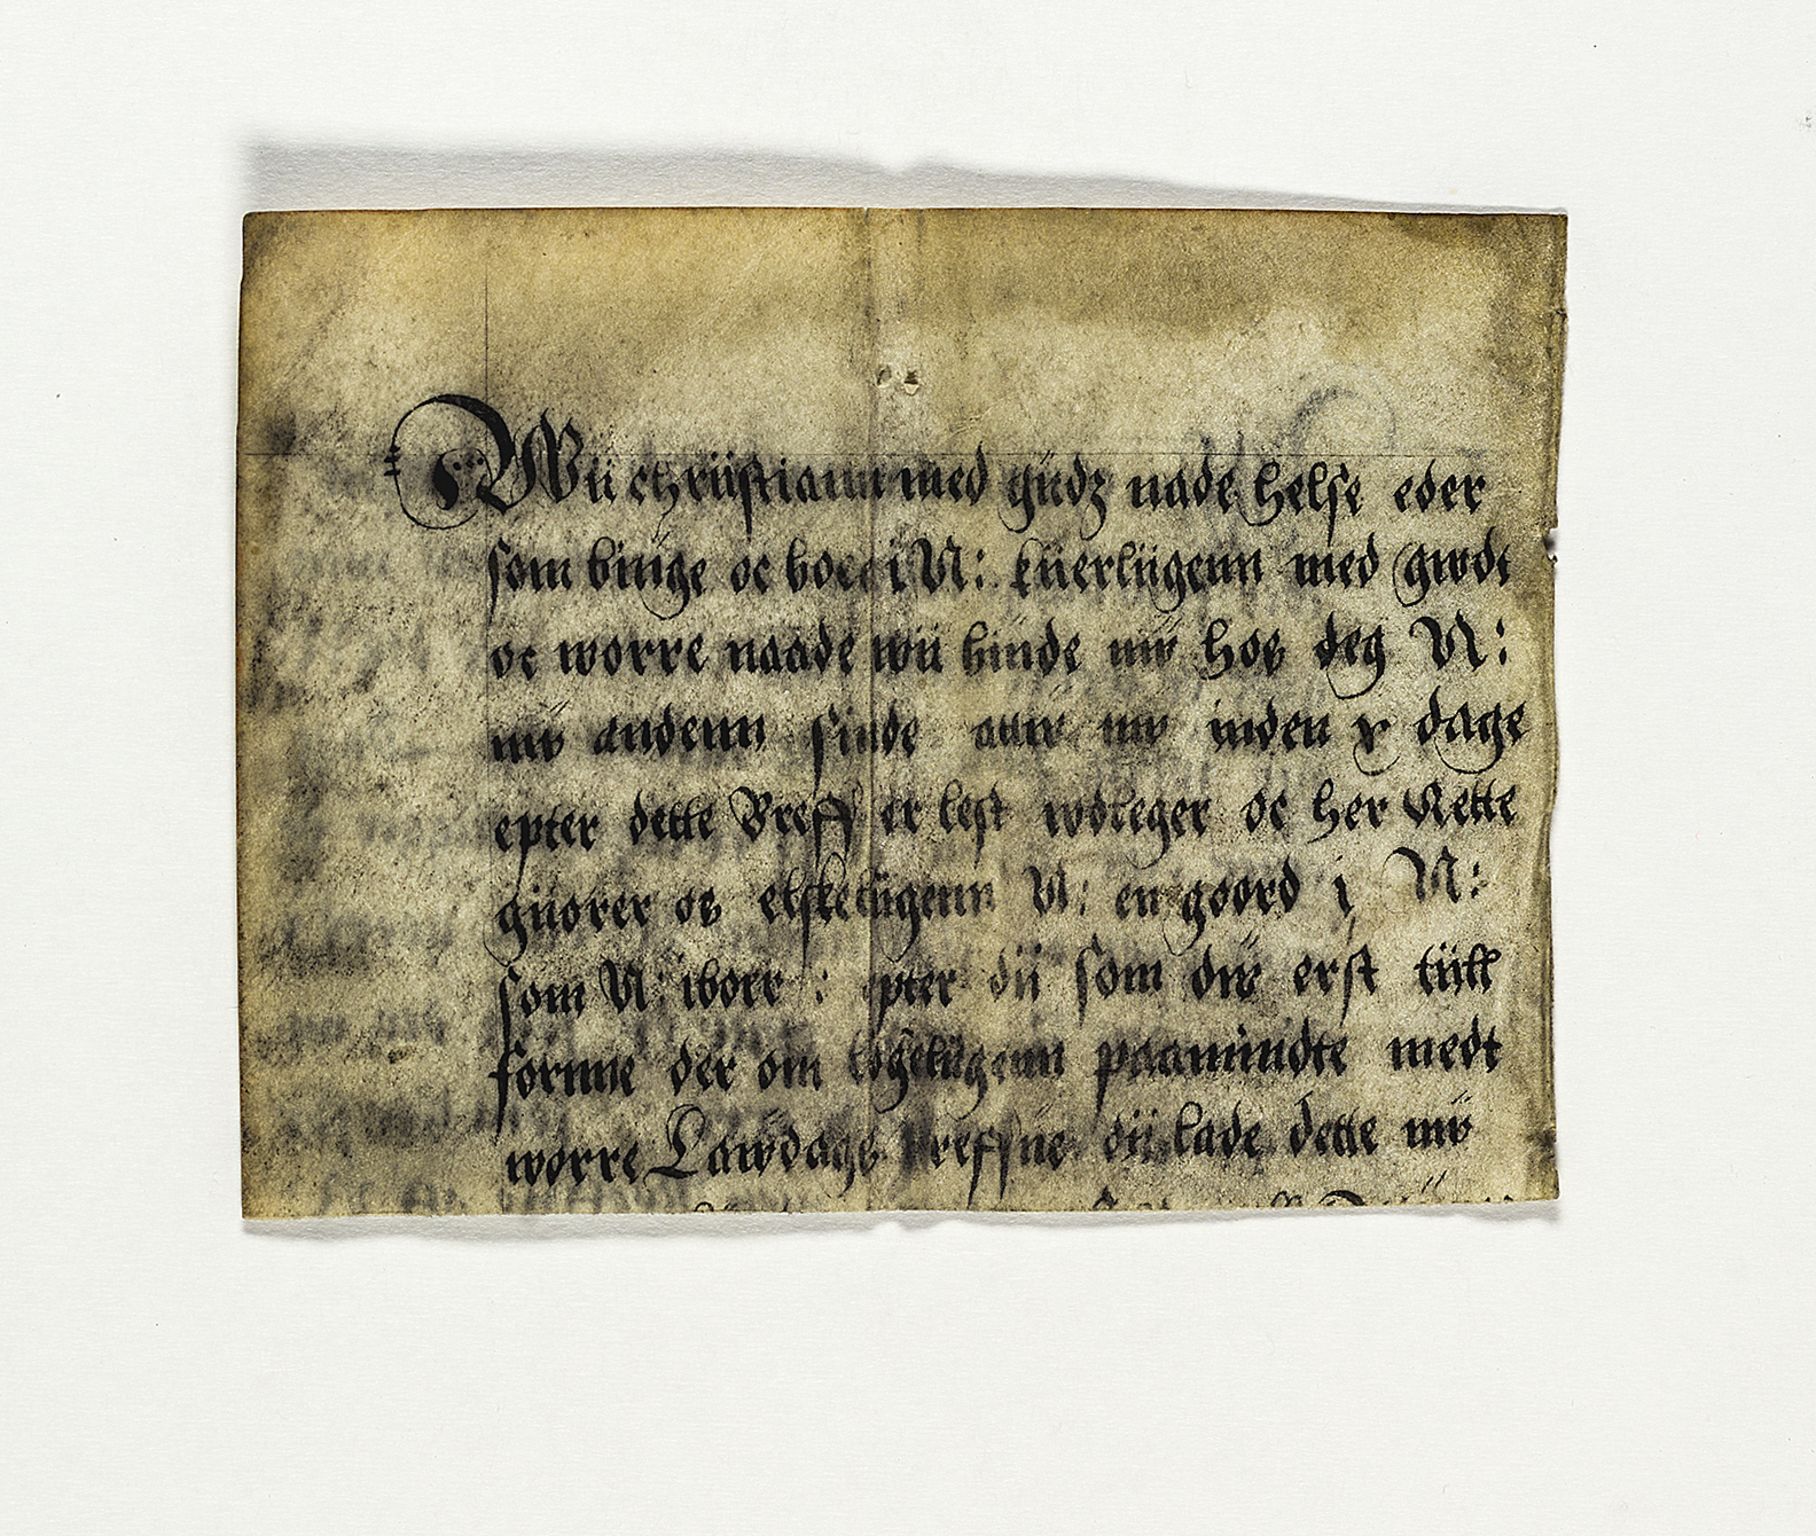 Wii chriistiann med güdz nade helse eder
som biüge oc boee i N: küerliigenn med gwdt
oc worre naade wii biüde nw hos deg N:
nw andenn sinde attw nw inden x dage
epter dette Breff er lest wdleger oc her Rette
giiorer os elskeliigenn N: en goord i N:
som N: iboer : epter dii som dw erst tiill
fornne der om logeliigenn paamindte medt
worre Lawdags breffne dii lade dette nw